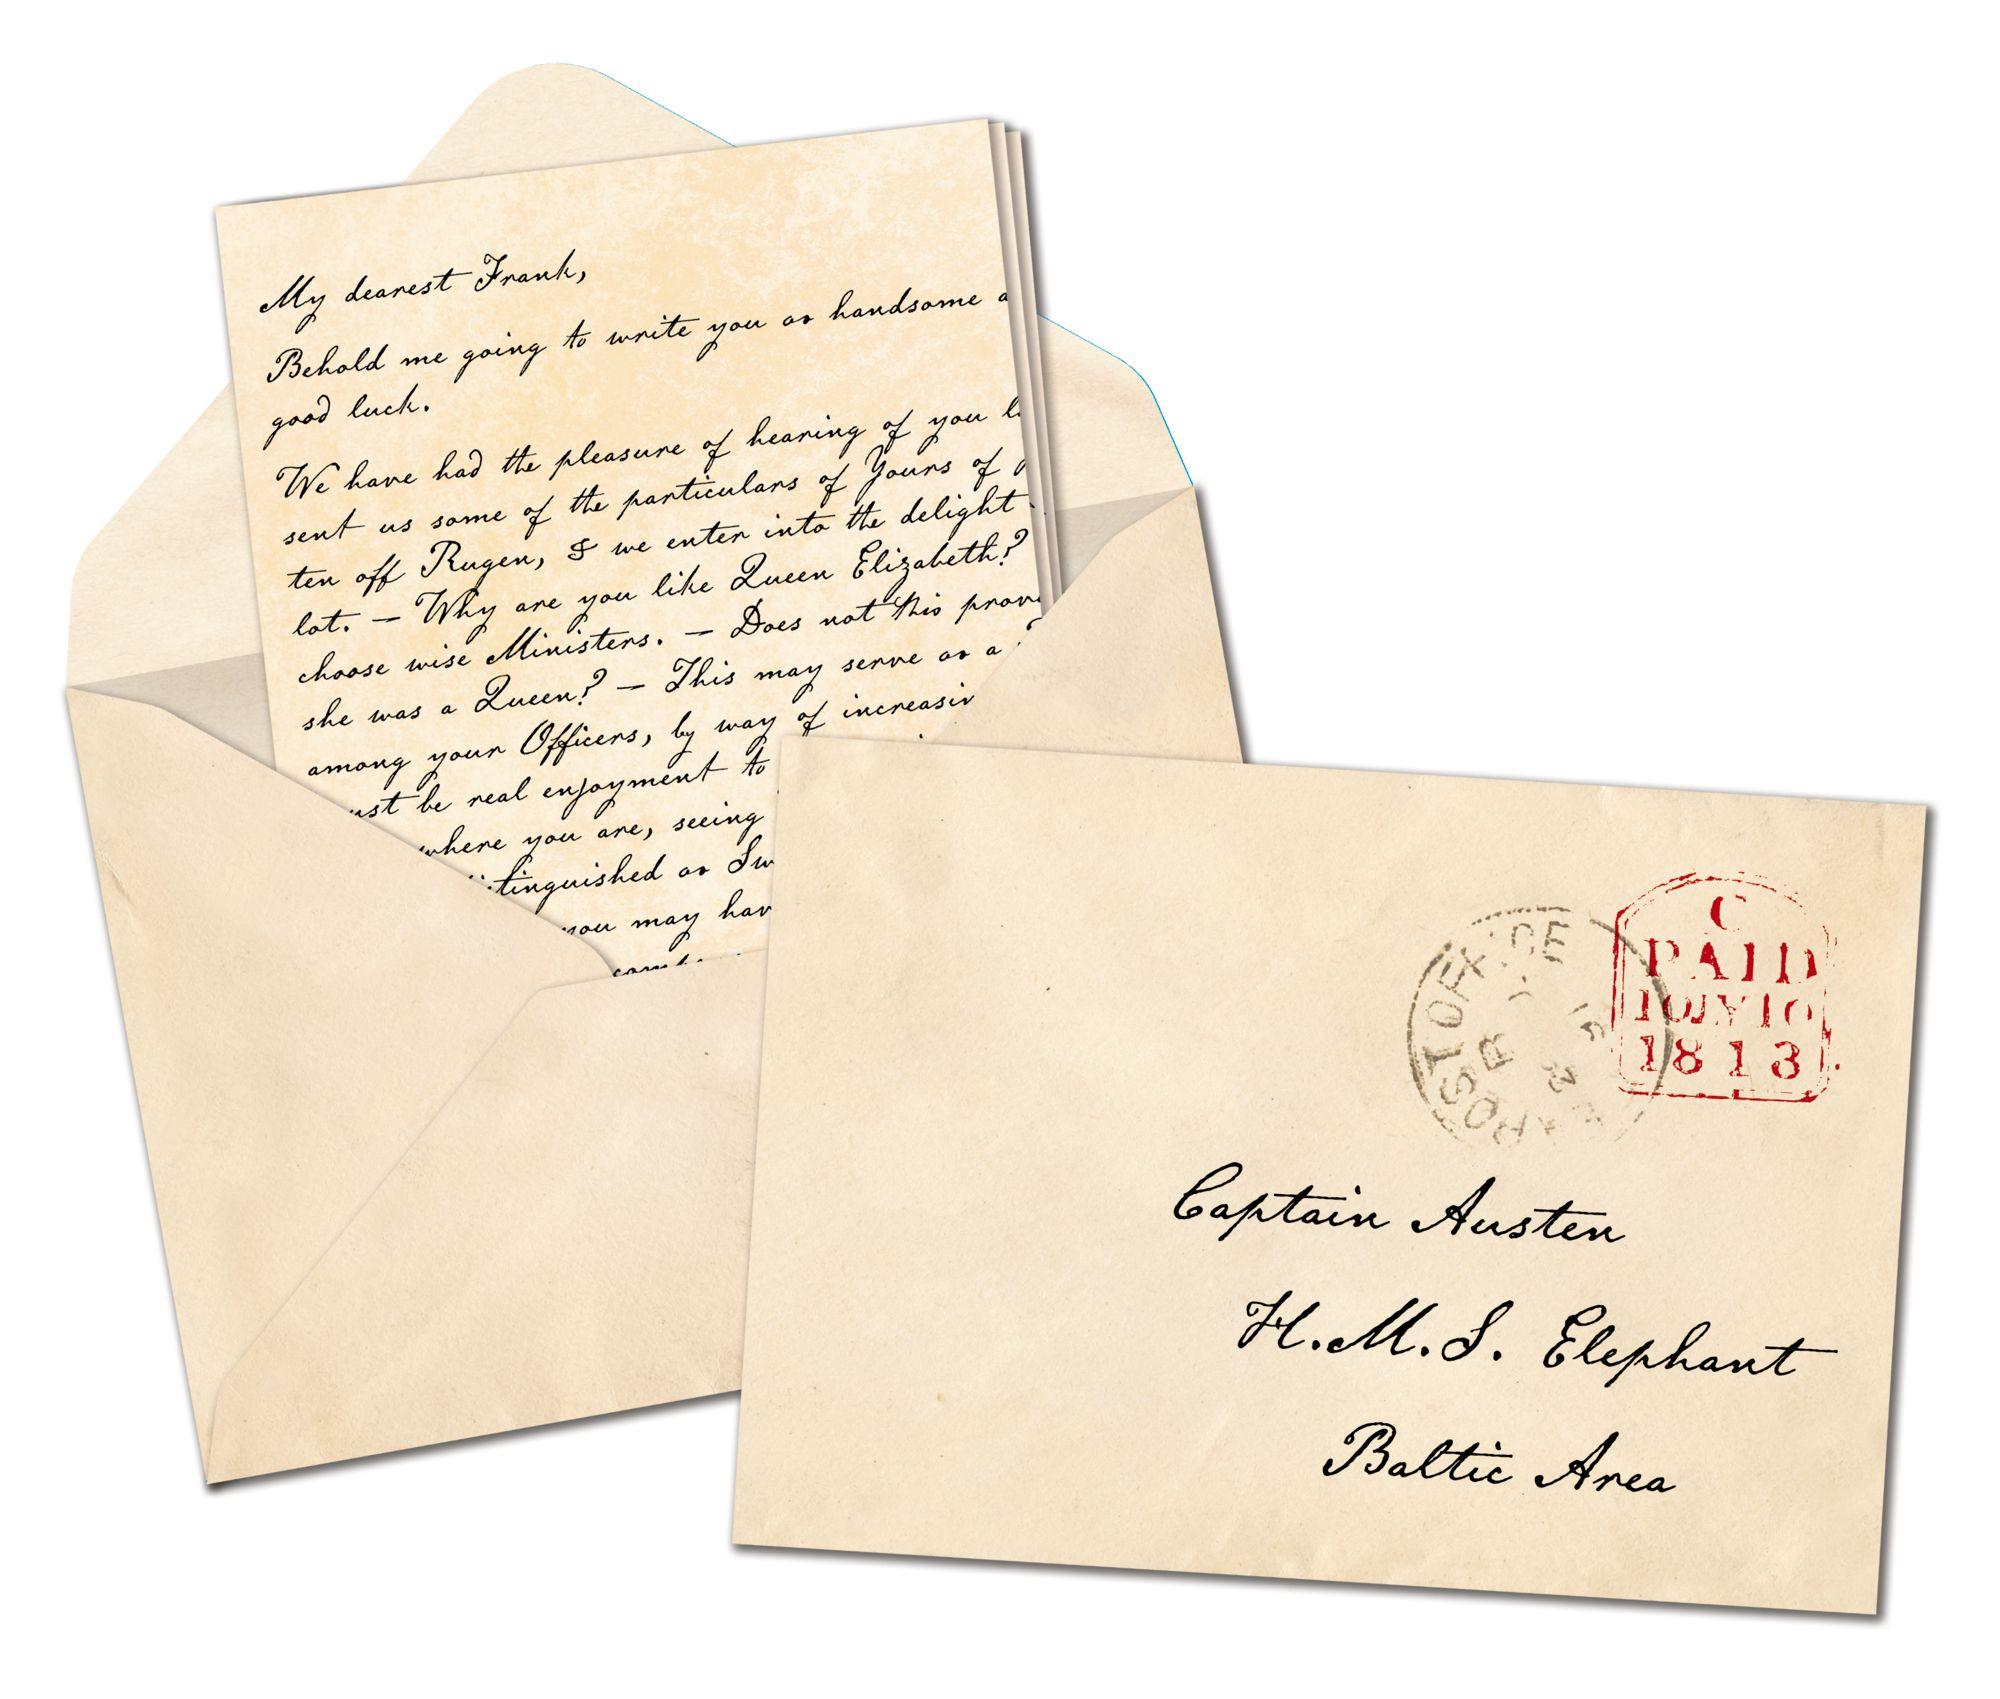 My dearest Frank,
Behold me going to write you as handsome a
good luck.
We have had the pleasure of hearing of you
sent us some of the particulars of Yours of
ten off Rugen, & we enter into the delight
lot. — Why are you like Queen Elizabeth?
choose wise Ministers. — Does not this prov
she was a Queen? — This may serve as a
among your Officers, by way of increasin
ust be real enjoyment to
where you are, seeing
tinguished as Sw
you may hav
C
PAID
10JY10
1813
Captain Austen
H.M.S. Elephant
Baltic Area